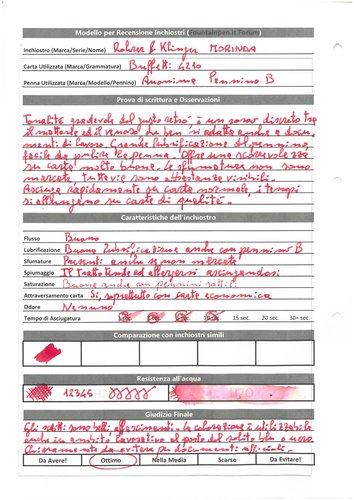 Modello per Recensione Inchiostri (Fountainpen.it Forum)
Inchiostro (Marca/Serie/Nome) Rohrer & Klinger MORINDA
Carta Utilizzata (Marca/Grammatura) Buffetti 4210
Penna Utilizzata (Marca/Modello/Pennino) Anonima Pennino B
Prova di scrittura e Osservazioni
Tonalità gradevole dal gusto retrò è un
il mattone ed il ben si adatta anche a docu
menti di lavoro. Grande lubrificazione del pennino
facile da pulire la penna. Offre una scorrevolezza
su carta molto buona. Le sfumature non sono
marcate, tuttavia sono abbastanza visibili.
Asciuga rapidamente su carta normale, i tempi
si allungano su carte di qualità.
Caratteristiche dell'inchiostro
Flusso Buono
Lubrificazione Buona lubrificazione anche con pennino B
Sfumature Presenti anche se non marcate
Spiumaggio Il tratto tende ad allargarsi asciugandosi
Saturazione Buona anche con pennini sottili
Attraversamento carta Si, soprattutto con carta economica
Odore Nessuno
Tempo di Asciugatura 15 sec. 20 sec. 30+ sec.
Comparazione con inchiostri simili
Resistenza all'acqua
12345
Giudizio Finale
Gli scritti sono belli affascinanti. La colorazione è utilizzabile
anche in ambito lavorativo al posto del solito blu o nero.
Chiaramente da evitare per documenti ufficiali.
Da Avere! Ottimo Nella Media Scarso Da Evitare!